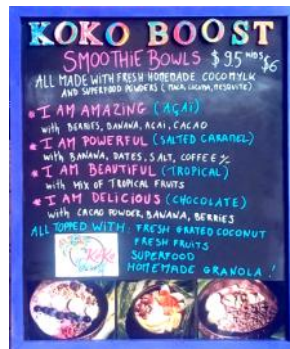 KOKO BOOST
SMOOTHiE BOWLS $9.5 KIDS $6
ALL MADE WITH FRESH HOMEMADE COCOMYLK
AND SUPERFOOD POWDERS (MACA, LUCUMA, MESQUITE)
* I AM AMAZING (AÇAi)
with BERRiES, BANANA, ACAI, CACAO
* I AM POWERFUL (SALTED CARAMEL)
with BANANA, DATES, SALT, COFFEE
* I AM BEAUTIFUL (TROPICAL)
with MIX OF TROPICAL FRUITS
* I AM DELICIOUS (CHOCOLATE)
with CACAO POWDER, BANANA, BERRIES
ALL TOPPED WITH: FRESH GRATED COCONUT
FRESH FRUITS
SUPERFOOD
HOMEMADE GRANOLA !
KoKo